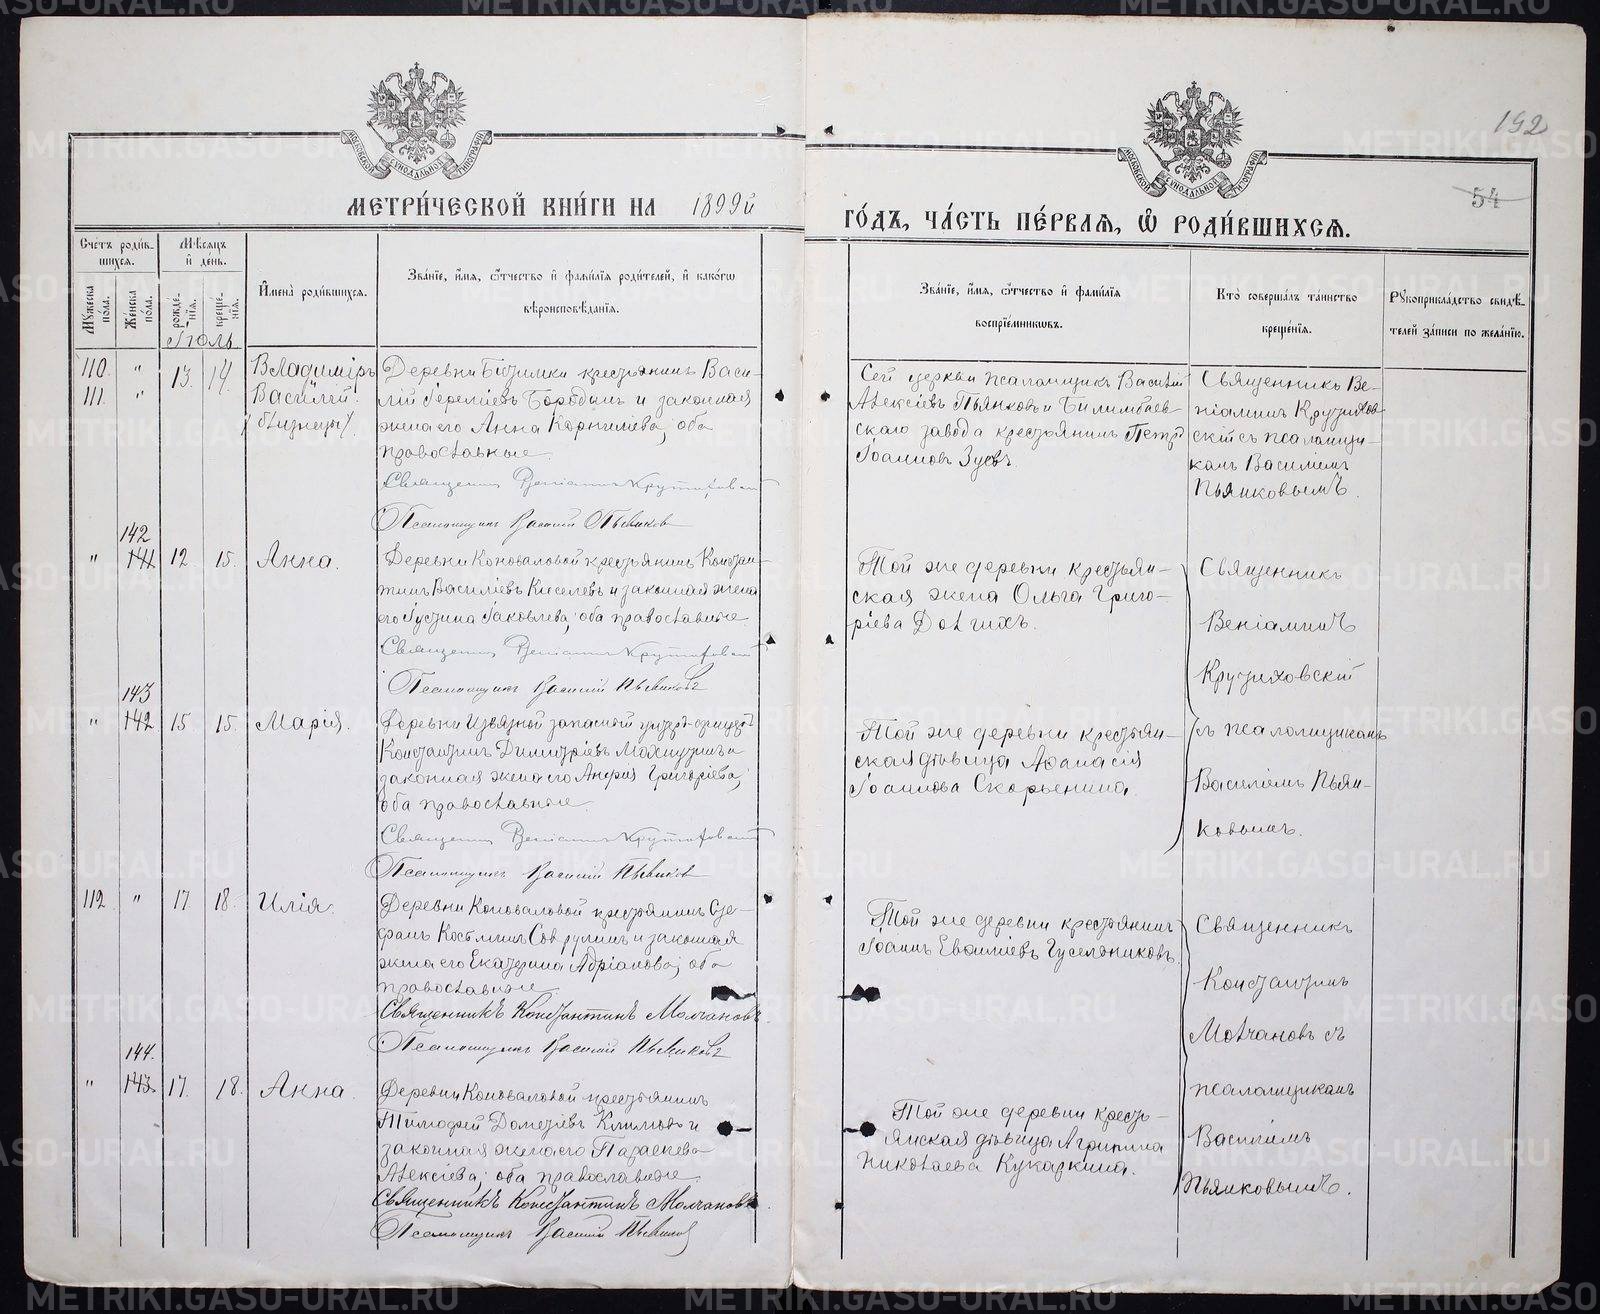 192
54
МЕТРИ́ЧЕСКОЙ КНИ́ГИ НА 1899й
ГО́ДЪ, ЧА́СТЬ ПЕ́РВАѦ, Ѡ҆ РОДИ́ВШИХСѦ.
Сче́тъ роди́в-
шихсѧ.
Мѣ́сѧцъ
и҆ де́нь.
Мꙋ́жеска по́ла.
Же́нска по́ла.
рожде́нїѧ.
креще́нїѧ.
И҆мена̀ роди́вшихсѧ.
Зва́нїе, и҆́мѧ, ѻ҆́тчество и҆ фами́лїѧ роди́телей, и҆ како́гѡ
вѣроисповѣ́данїѧ.
Зва́нїе, и҆́мѧ, ѻ҆́тчество и҆ фами́лїѧ
воспрїе́мникѡвъ.
Кто̀ соверша́лъ та́инство
креще́нїѧ.
Рꙋкоприкла́дство свидѣ́-
телей за́писи по жела́нїю.
Іюль
110. " 13. 14. Владиміръ
111. " Василій.
/близнецы/.
Деревни Битимки крестьянинъ Васи-
лій Іереміевъ Бородинъ и законная
жена его Анна Корнилиева; оба
православные.
Священникъ Веніаминъ Крутиховскій
Псаломщикъ Василій Пьянковъ
Сей церкви псаломщикъ Василій
Алексіевъ Пьянковъ и Билимбаев-
скаго завода крестьянинъ Петръ
Іоанновъ Зуевъ.
Священникъ Ве-
ніаминъ Крутихов-
скій съ псаломщи-
комъ Василіемъ
Пьянковымъ.
142
" 141 12 15. Анна.
Деревни Коноваловой крестьянинъ Констан-
тинъ Василіевъ Киселевъ и законная жена
его Іустина Іаковлева; оба православные.
Священникъ Веніаминъ Крутиховскій
Псаломщикъ Василій Пьянковъ
Той же деревни крестьян-
ская жена Ольга Григо-
ріева Долгихъ.
Священникъ
Веніаминъ
Крутиховскій
съ псаломщикомъ
Василіемъ Пьян-
ковымъ.
143
" 142 15 15. Марія.
Деревни Извязной запасной унтеръ-офицеръ
Константинъ Димитріевъ Махнутинъ и
законная жена его Григоріева;
оба православные.
Священникъ Веніаминъ Крутиховскій
Псаломщикъ Василій Пьянков
Той же деревни крестьян-
ская дѣвица Аѳанасія
Іоаннова Скорынина.
112. " 17 18. Илія.
Деревни Коноваловой крестьянинъ Сте-
фанъ и законная
жена его Екатерина Адріанова; оба
православные.
Священникъ Константинъ Молчановъ.
Псаломщикъ Василій Пьянковъ
Той же деревни крестьянинъ
Іоаннъ Евѳиміевъ Гусельниковъ.
Священникъ
Константинъ
Молчановъ съ
псаломщикомъ
Василіемъ
Пьянковымъ.
144.
" 143. 17. 18. Анна.
Деревни Коноваловой крестьянинъ
Тимофей Дометіевъ Климовъ и
законная жена его Параскева
Алексіева; оба православные.
Священникъ Константинъ Молчановъ
Псаломщикъ Василій Пьянковъ
Той же деревни кресть-
янская дѣвица Агрипина
Николаева Кукаркина.
METRIKI.GASO-URAL.RU